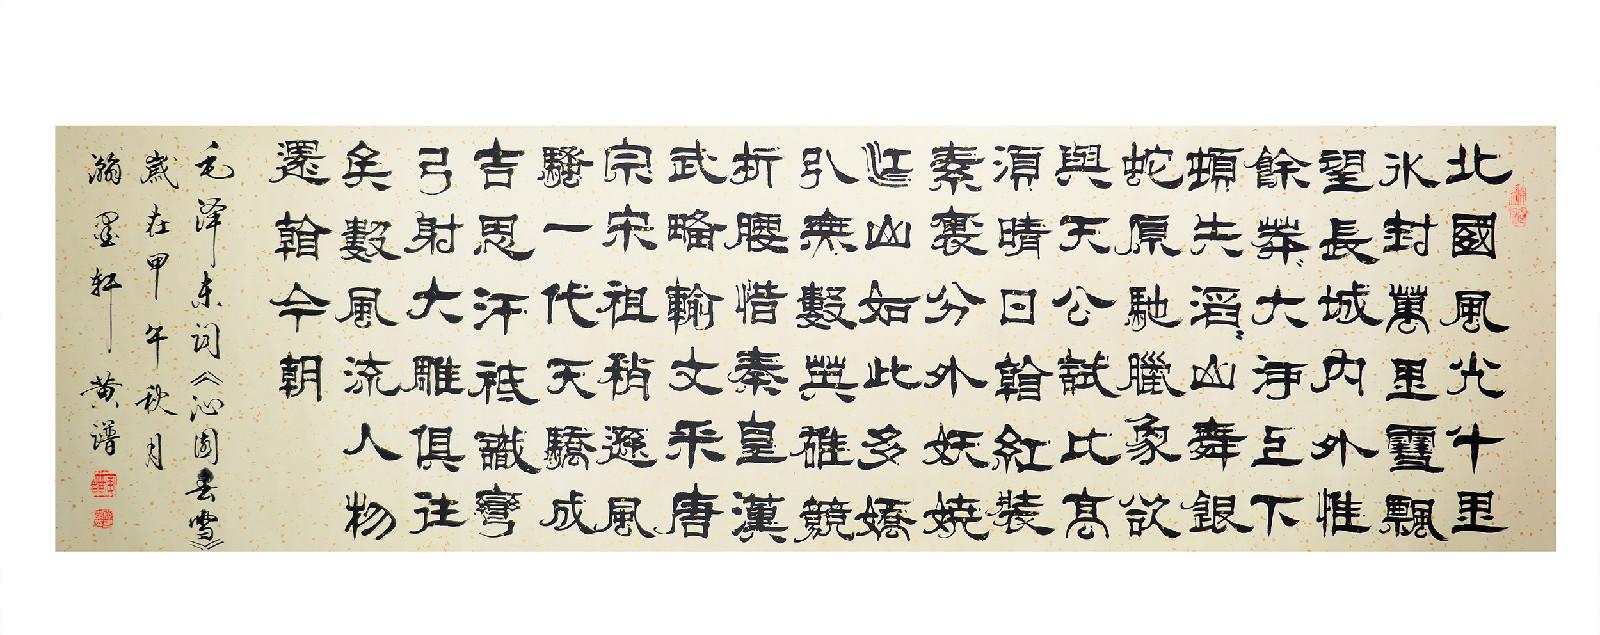 北國風光千里
氷封萬里雪飄
望長城內外惟
餘莽〻大河上下
頓失滔〻山舞銀
蛇原馳臘象欲
與天公試比高
須晴日看紅裝
素裹分外妖嬈
江山如此多嬌
引無數英雄競
折腰惜秦皇漢
武略輸文采唐
宗宋祖稍遜風
騷一代天驕成
吉思汗祇識彎
弓射大雕俱往
矣數風流人物
還看今朝
毛泽东词《沁园春雪》
歲在甲午秋月
瀚墨轩 黄谱